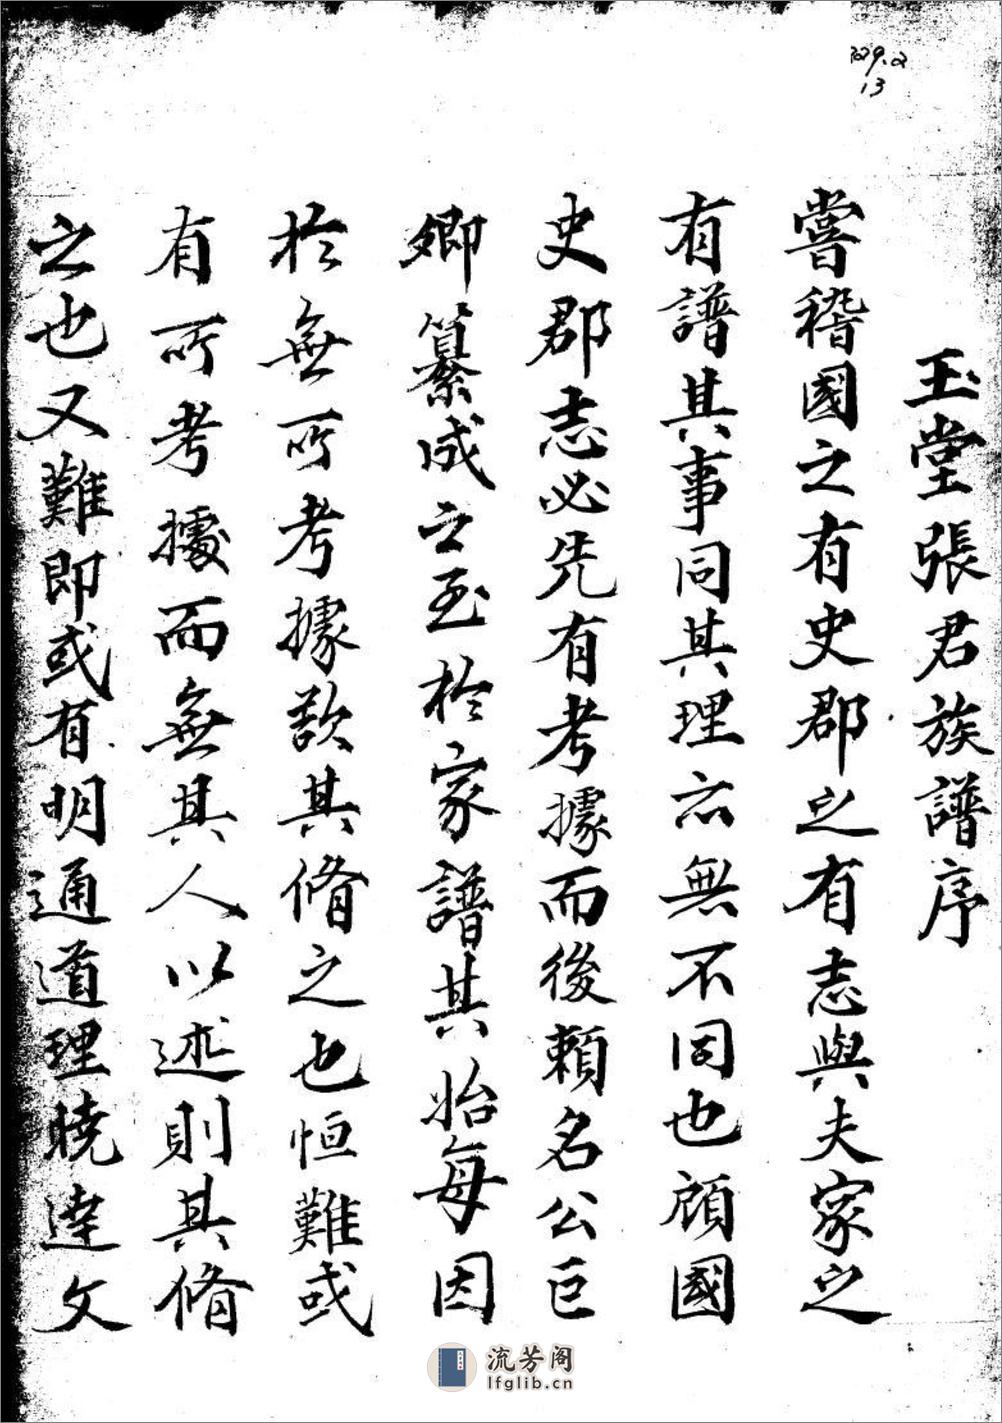 729.2
13
玉堂張君族譜序
嘗稽國之有史郡之有志與夫家之
有譜其事同其理亦無不同也顧國
史郡志必先有考據而後賴名公巨
卿纂成之至於家譜其始每因
於無可考據歟其脩之也恒難或
有所考據而無其人以述則其脩
之也又難即或有明通道理曉達文
流芳阁
lfglib.cn